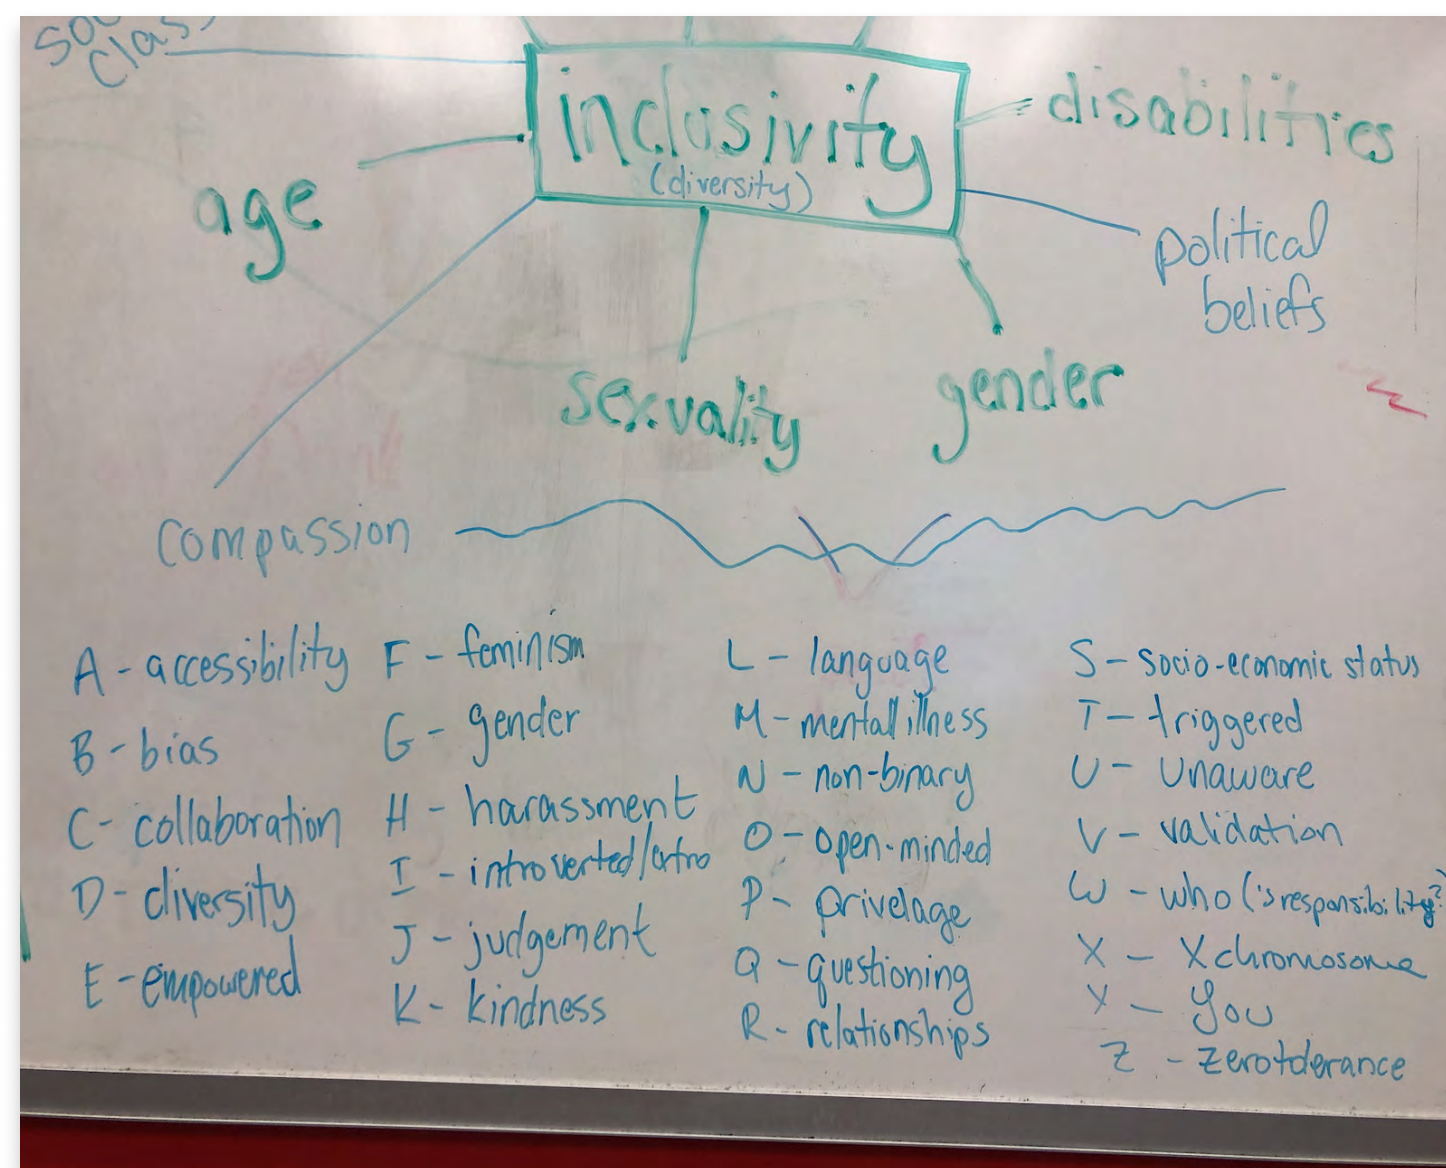 Class
inclusivity
(diversity)
disabilities
age
political
beliefs
sexuality
gender
compassion
A - accessibility
B - bias
C - collaboration
D - diversity
E - empowered
F - feminism
G - gender
H - harassment
I - introverted/extro
J - judgement
K - kindness
L - language
M - mental illness
N - non-binary
O - open-minded
P - privelage
Q - questioning
R - relationships
S - socio-economic status
T - triggered
U - Unaware
V - validation
W - who ('s responsibility?
X - X chromosome
Y - You
Z - zero tolerance